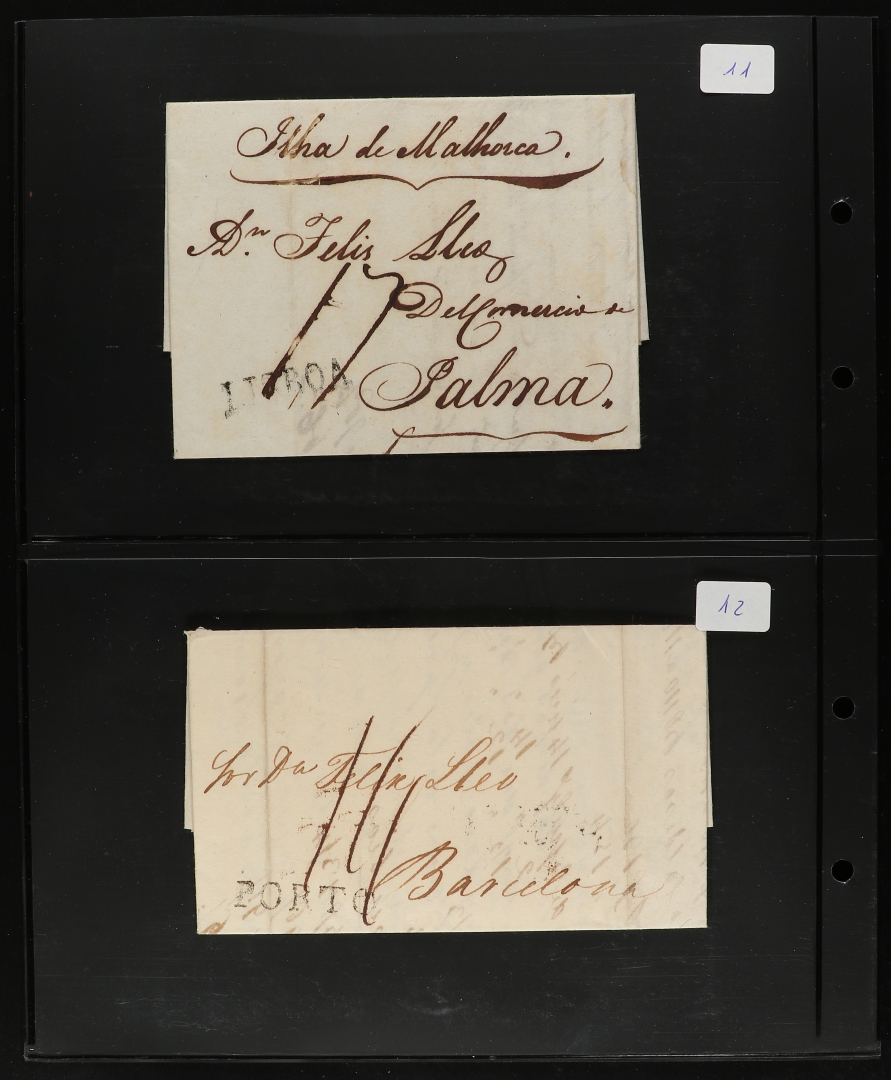 11
Ilha de Malhorca.
A Dn. Felis Lleo
17
Del Comercio de
LISBOA
Palma.
12
Sor Dn Felix Lleo
11
PORTO
Barcelona